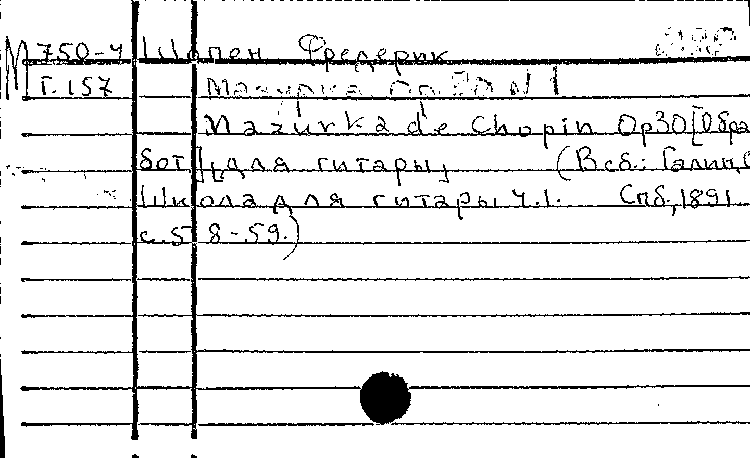 М 750-4 Шопен Фредерик
Г.157 Мазурка Op.30 N 1
Mazurka de Chopin Op30 [Обра
бот], для гитары, (В сб.: Галин, С
Школа для гитары ч.1. Спб., 1891
с.58-59.)